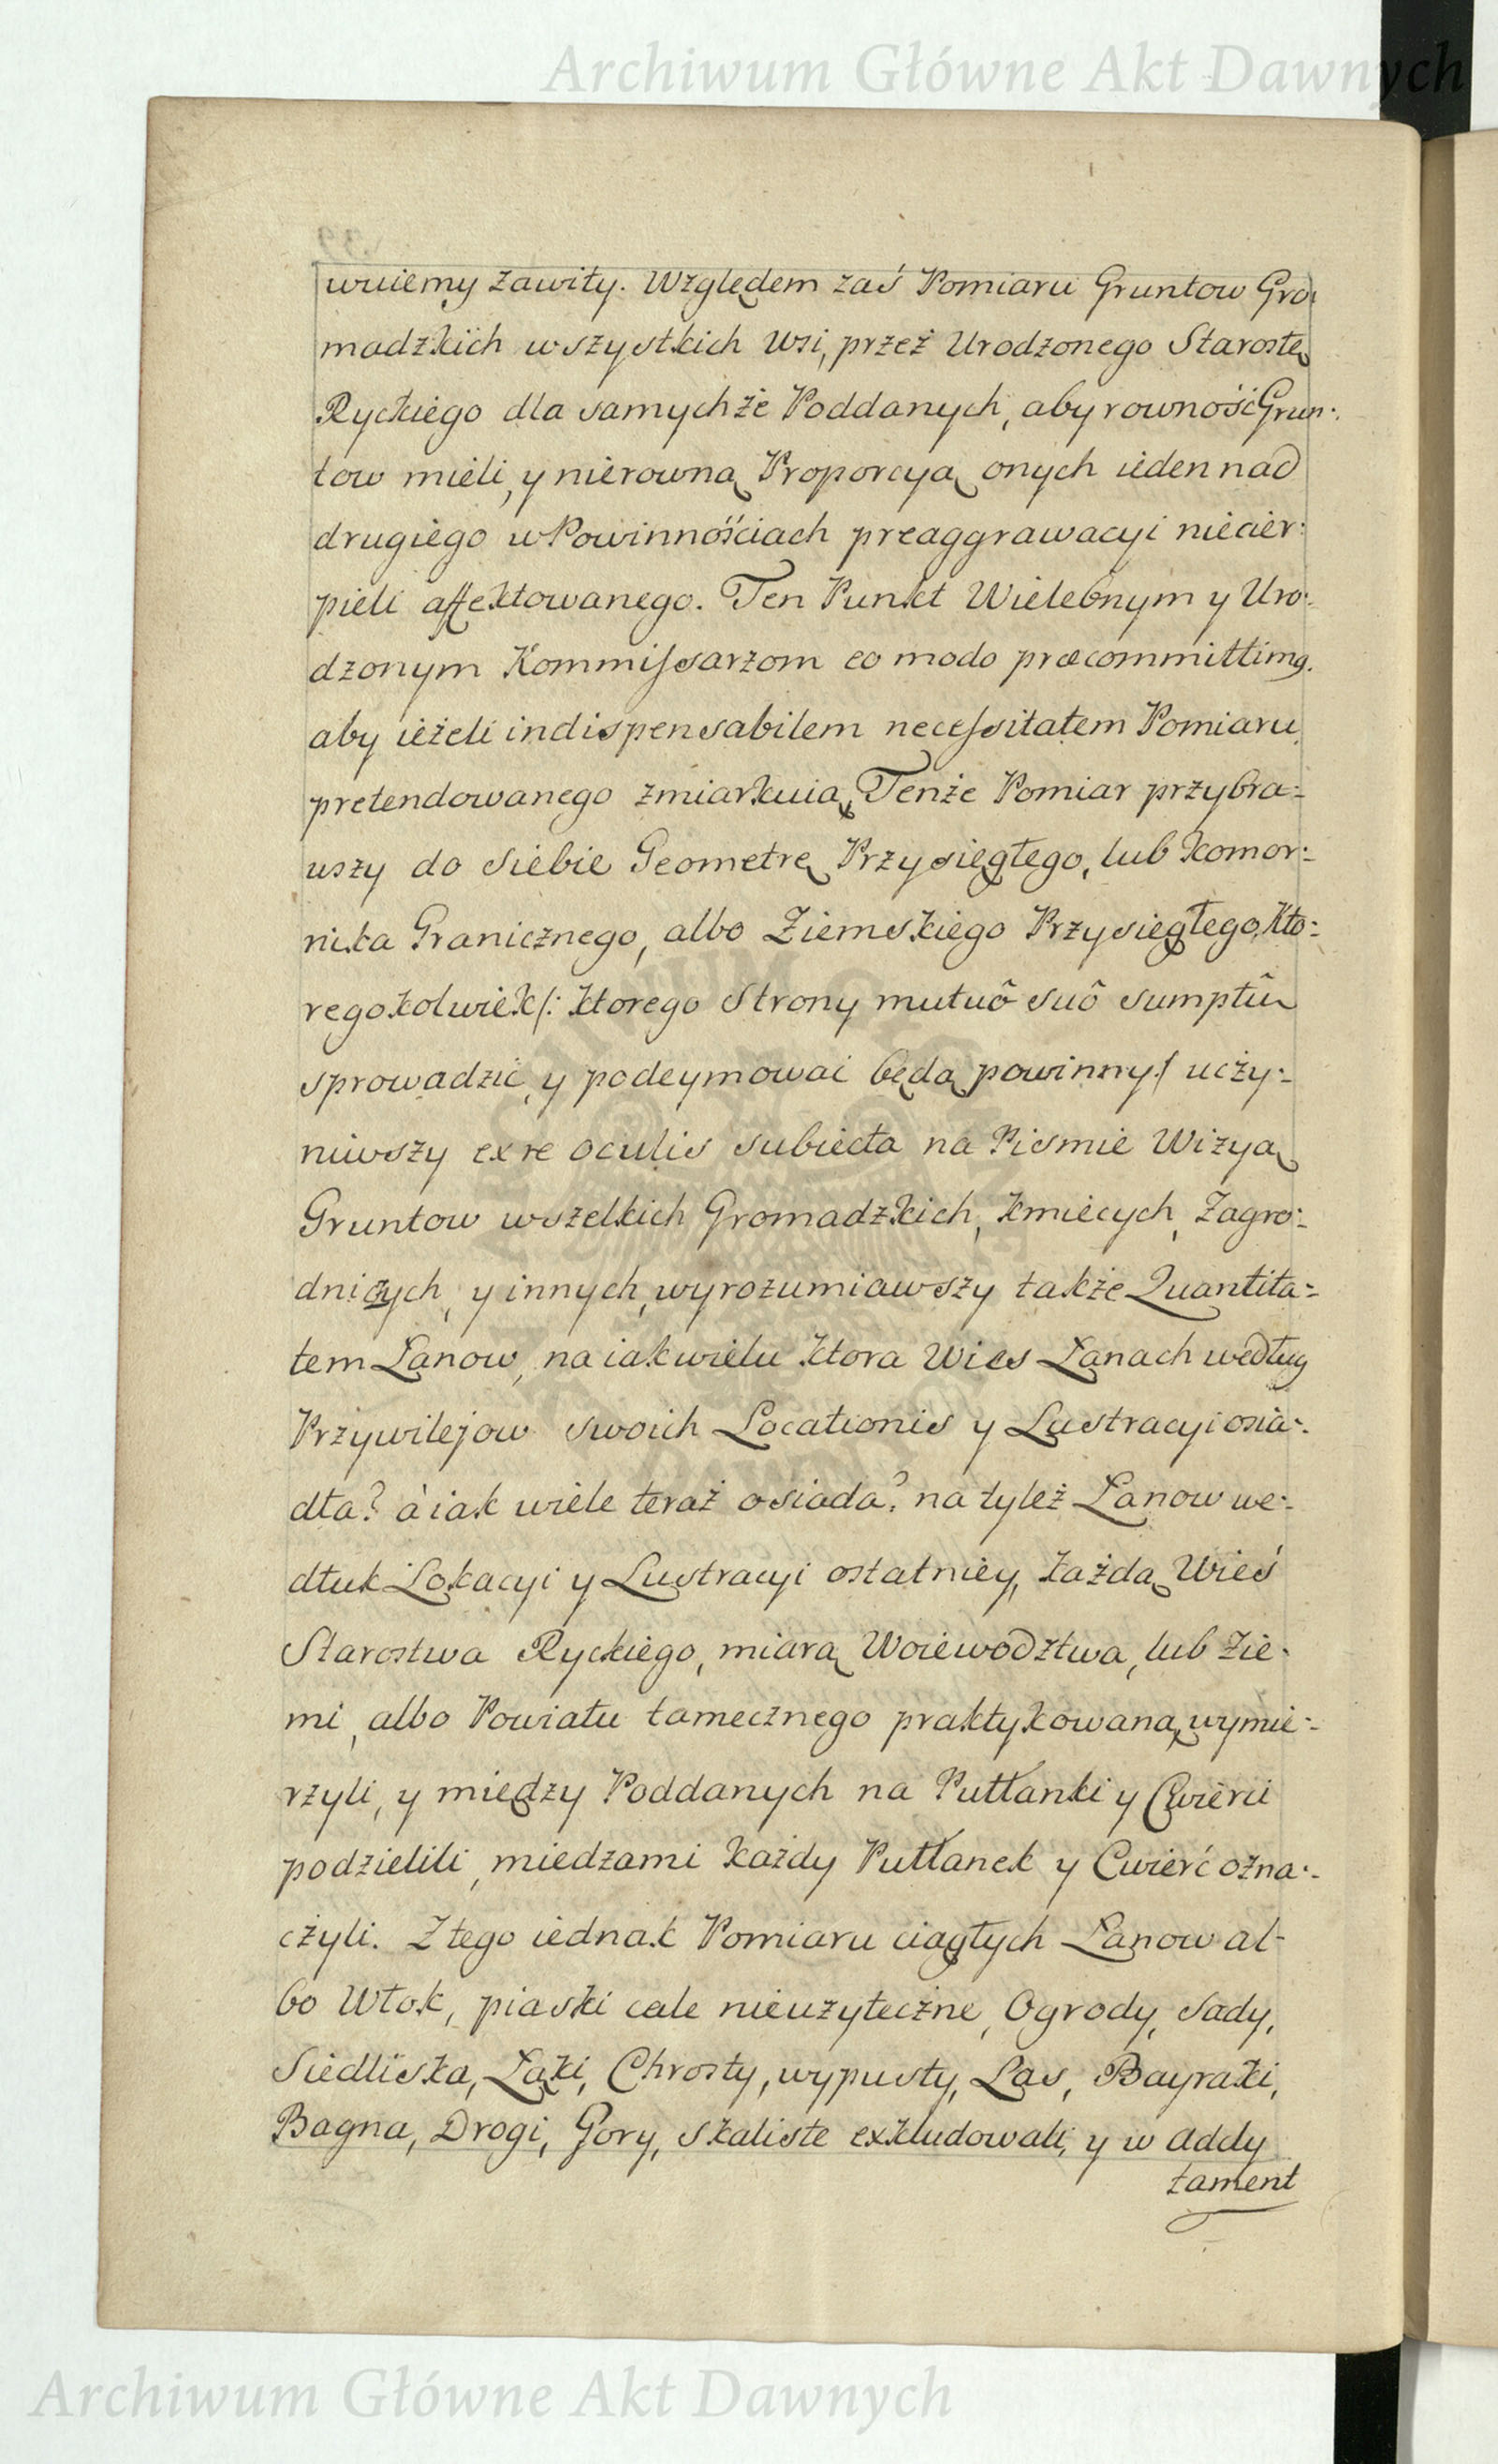 Archiwum Główne Akt Dawnych
wuiemy zawity. Względem zaś Pomiaru Gruntow Gro:
madzkich wszystkich wsi, przez Urodzonego Starostę
Ryckiego dla samychże Poddanych, aby rownośc Grun:
tow mieli, y nierowną Proporcyą onych ieden nad
drugiego w Powinnościach preaggrawacyi niecier:
pieli affektowanego. Ten Punkt Wielebnym y Uro:
dzonym Kommissarzom eo modo præcommittimg.
aby ieżeli indispensabilem necessitatem Pomiaru
pretendowanego zmiarkuią, Tenże Pomiar przybra:
wszy do siebie Geometrę Przysięgłego, lub Komor:
nika Granicznego, albo Ziemskiego Przysięgłego, Kto:
regokolwiek /: ktorego Strony mutuô suô sumptû
sprowadzić y podeymowai będą powinny :/ uczy:
niwszy ex re oculis subiecta na Pismie Wizyą
Gruntow wszelkich Gromadzkich, kmiecych, Zagro:
dniczych, y innych, wyrozumiawszy także Quantita:
tem Łanow, na iak wielu ktora Wies Łanach według
Przywilejow swoich Locationis y Lustracyi osia:
dła? à iak wiele teraz osiada? na tyleż Łanow we:
dłuk Lokacyi y Lustracyi ostatniey, każdą Wieś
Starostwa Ryckiego, miarą Woiewodztwa, lub Zie:
mi, albo Powiatu tamecznego praktykowaną, wymie:
rzyli, y między Poddanych na Pułłanki y Cwierci
podzielili, miedzami każdy Pułłanek y Cwierć ozna:
czyli. Z tego iednak Pomiaru ciągłych Łanow al-
bo Włok, piaski cale nieużyteczne, Ogrody, sady,
Siedliska, Łąki, Chrosty, wypusty, Las, Bayraki,
Bagna, Drogi, Gory, skaliste exkludowali, y w addy
tament
Archiwum Główne Akt Dawnych